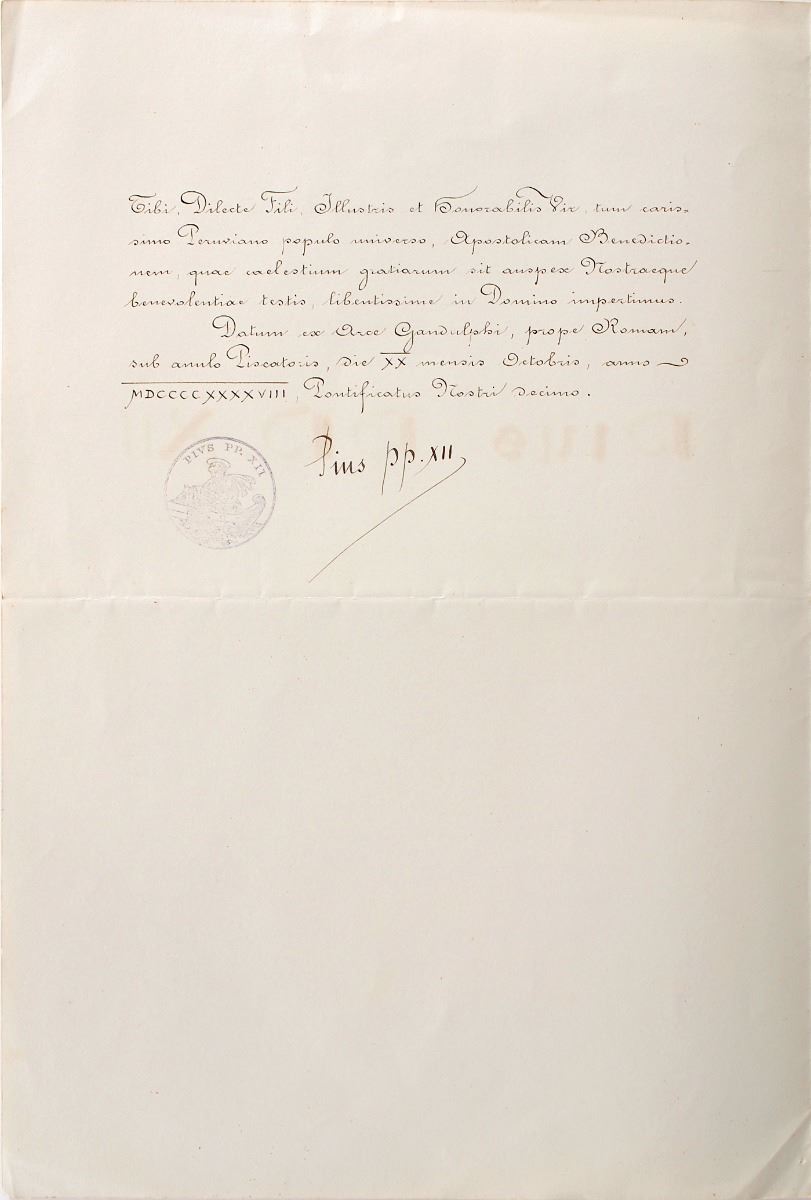 Tibi, Dilecte Fili, Illustris et Honorabilis Vir, tum caris-
simo Peruviano populo universo, Apostolicam Benedictio-
nem, quae caelestium gratiarum sit auspex Nostraeque
benevolentiae testis, libentissime in Domino impertimus.
Datum ex Arce Gandulphi, prope Romam,
sub anulo Piscatoris, die XX mensis Octobris, anno
MDCCCCXXXXVIII, Pontificatus Nostri decimo.
PIVS PP. XII
Pius pp. XII